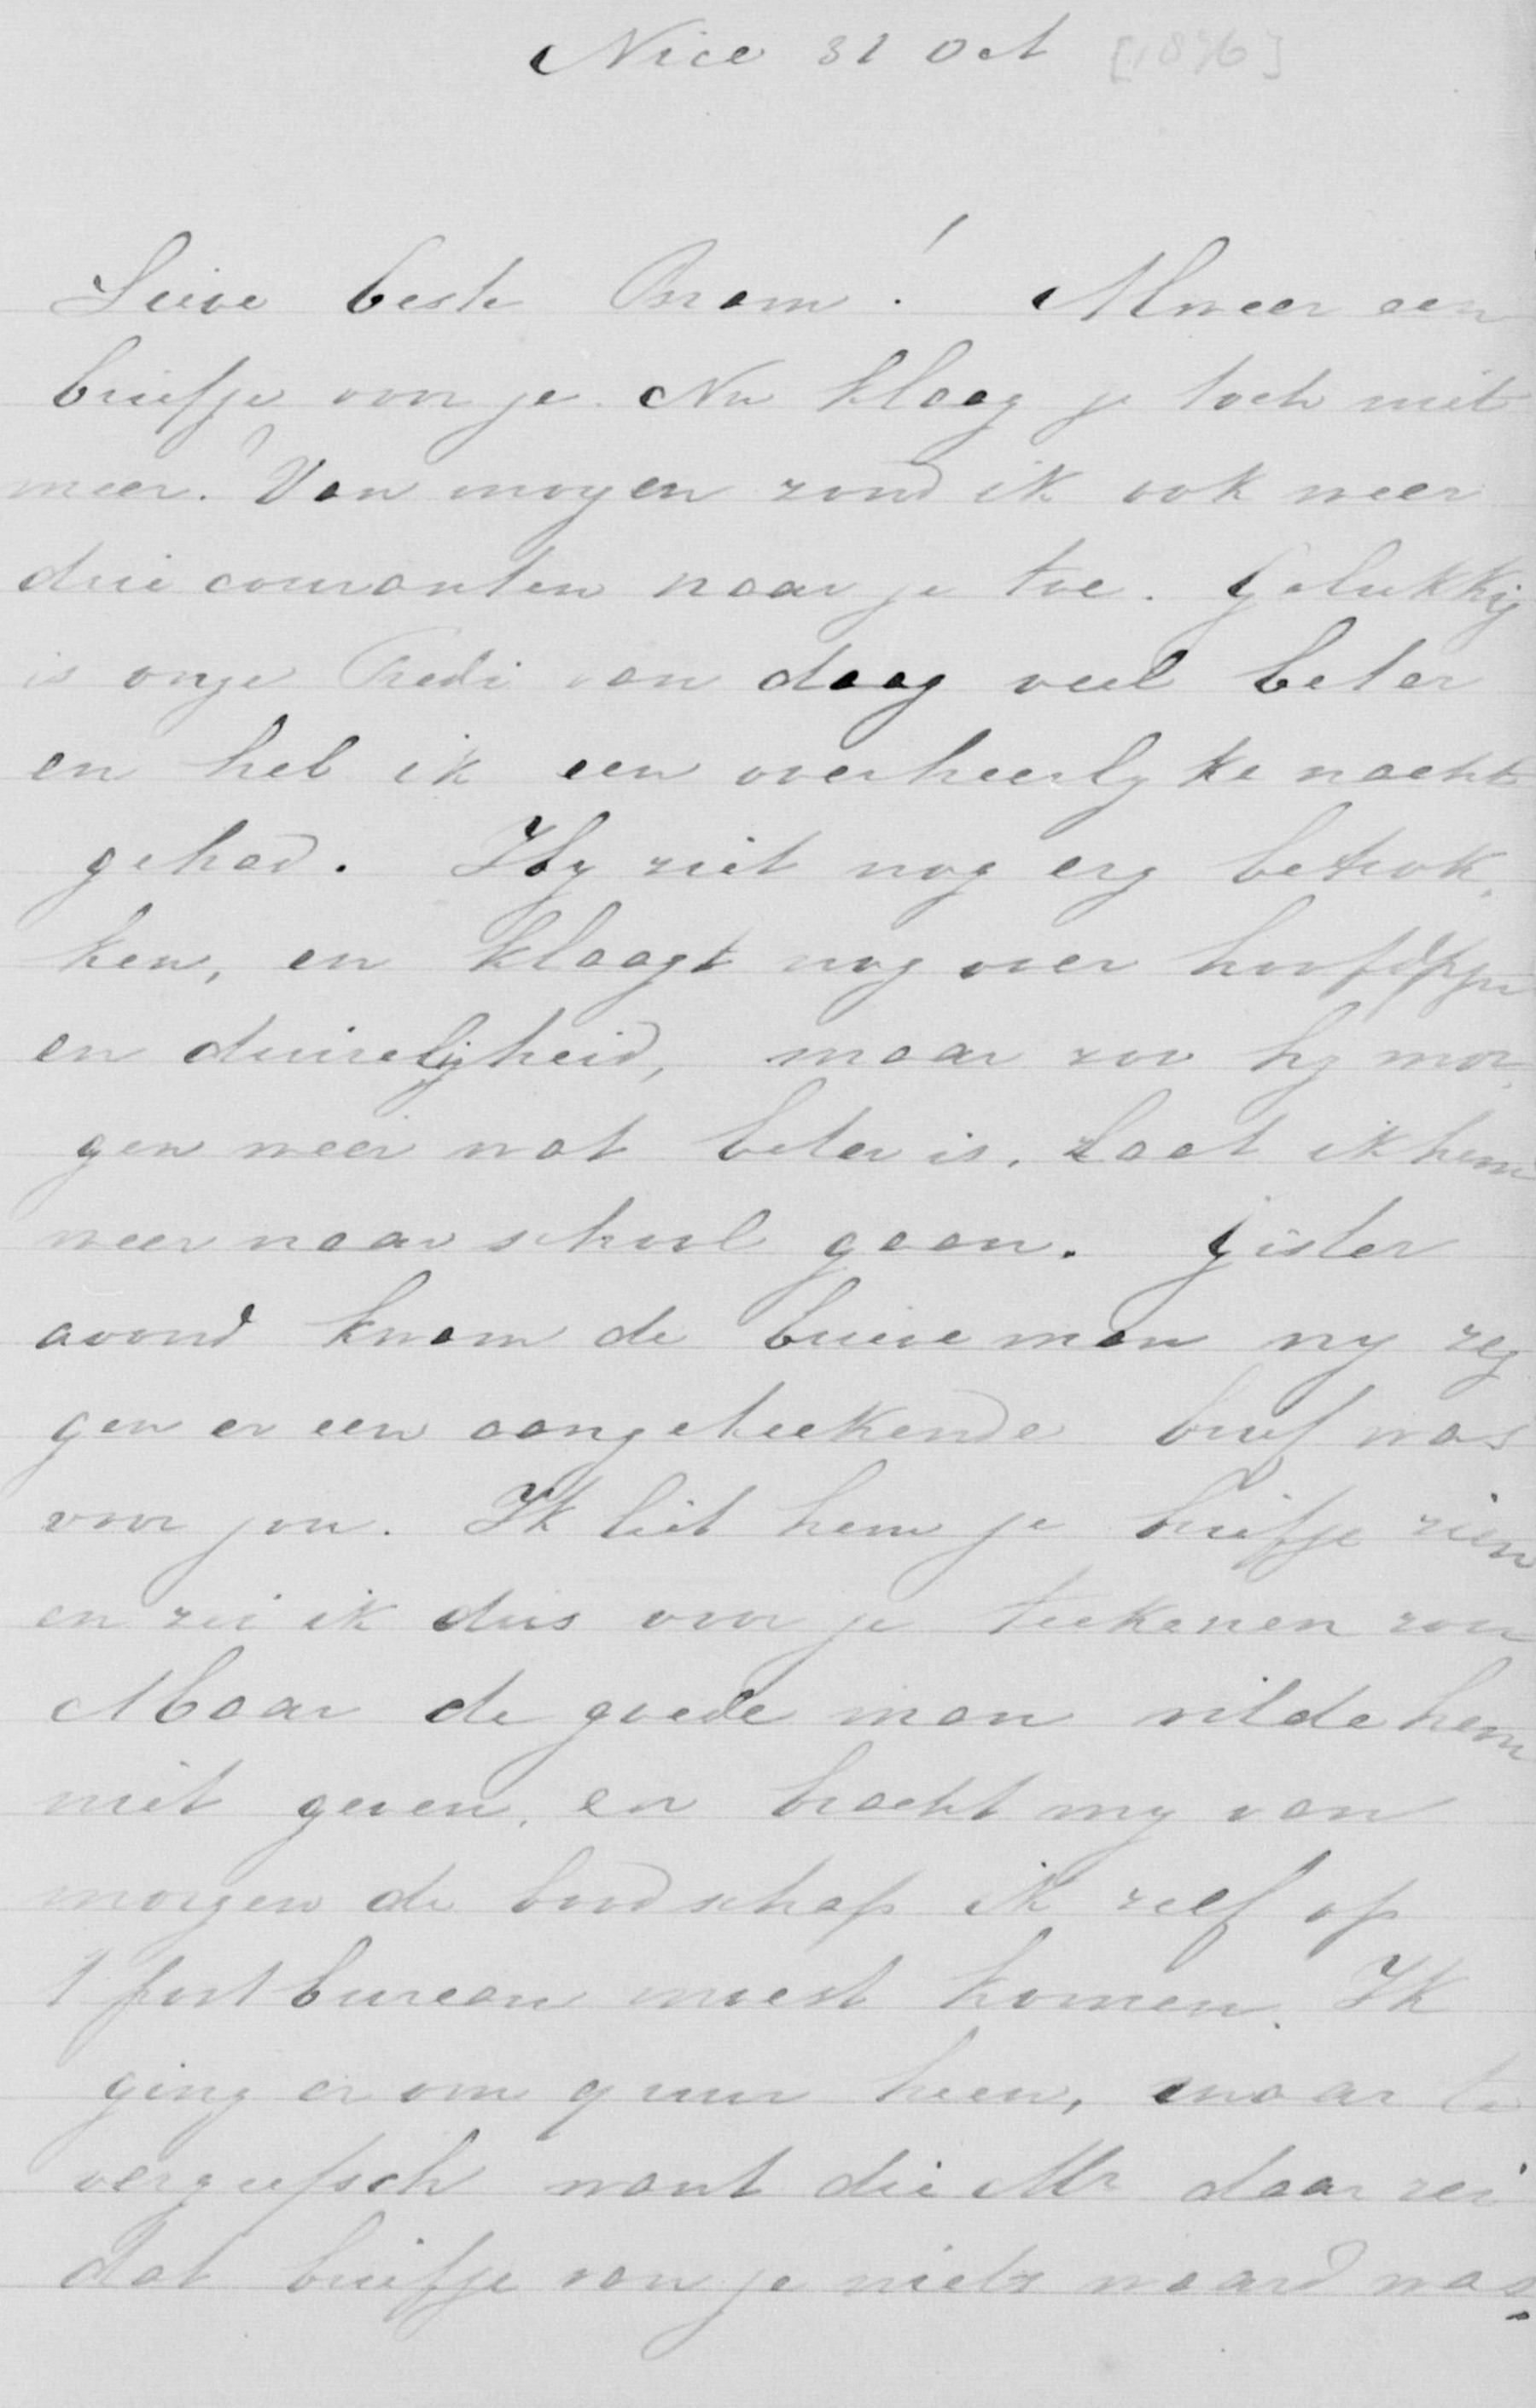 Nice 31 Oct [1896]
Lieve beste Bram! Alweer een
briefje voor je. Nu klaag je toch niet
meer! Van morgen zond ik ook weer
drie couranten naar je toe. Gelukkig
is onze Fredi van daag veel beter
en heb ik een overheerlyke nacht
gehad. Hy ziet nog erg betrok,
ken, en klaagt nog over hoofdpyn
en duizeligheid, maar zoo hy mor,
gen weer wat beter is, laat ik hem
weer naar school gaan. Gister
avond kwam de brieveman my zeg
gen er een aangeteekende brief was
voor jou. Ik liet hem je briefje zien
en zei ik dus voor je teekenen zou
Maar de goede man wilde hem
niet geven, en bracht my van
morgen de boodschap ik zelf op
't postbureau moest komen. Ik
ging er om 9 uur heen, maar te
vergeefsch want die Mr daar zei
dat briefje van je niets waard was.